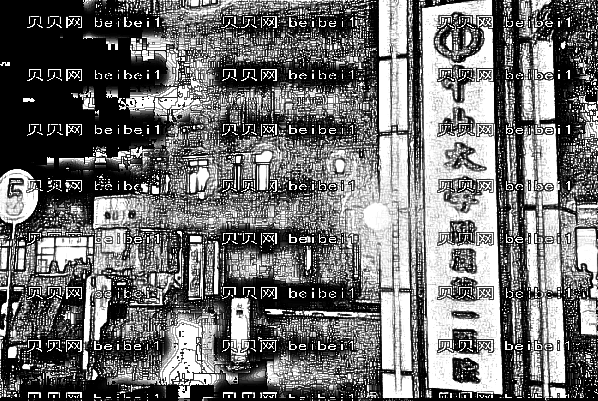 贝贝网 beibei1 贝贝网 beibei1 贝贝网 beibei1
贝贝网 beibei1 贝贝网 beibei1 贝贝网 beibei1
贝贝网 beibei1 贝贝网 beibei1 贝贝网 beibei1
贝贝网 beibei1 贝贝网 beibei1 贝贝网 beibei1
贝贝网 beibei1 贝贝网 beibei1 贝贝网 beibei1
贝贝网 beibei1 贝贝网 beibei1 贝贝网 beibei1
贝贝网 beibei1 贝贝网 beibei1 贝贝网 beibei1
5
中山大学附属第一医院